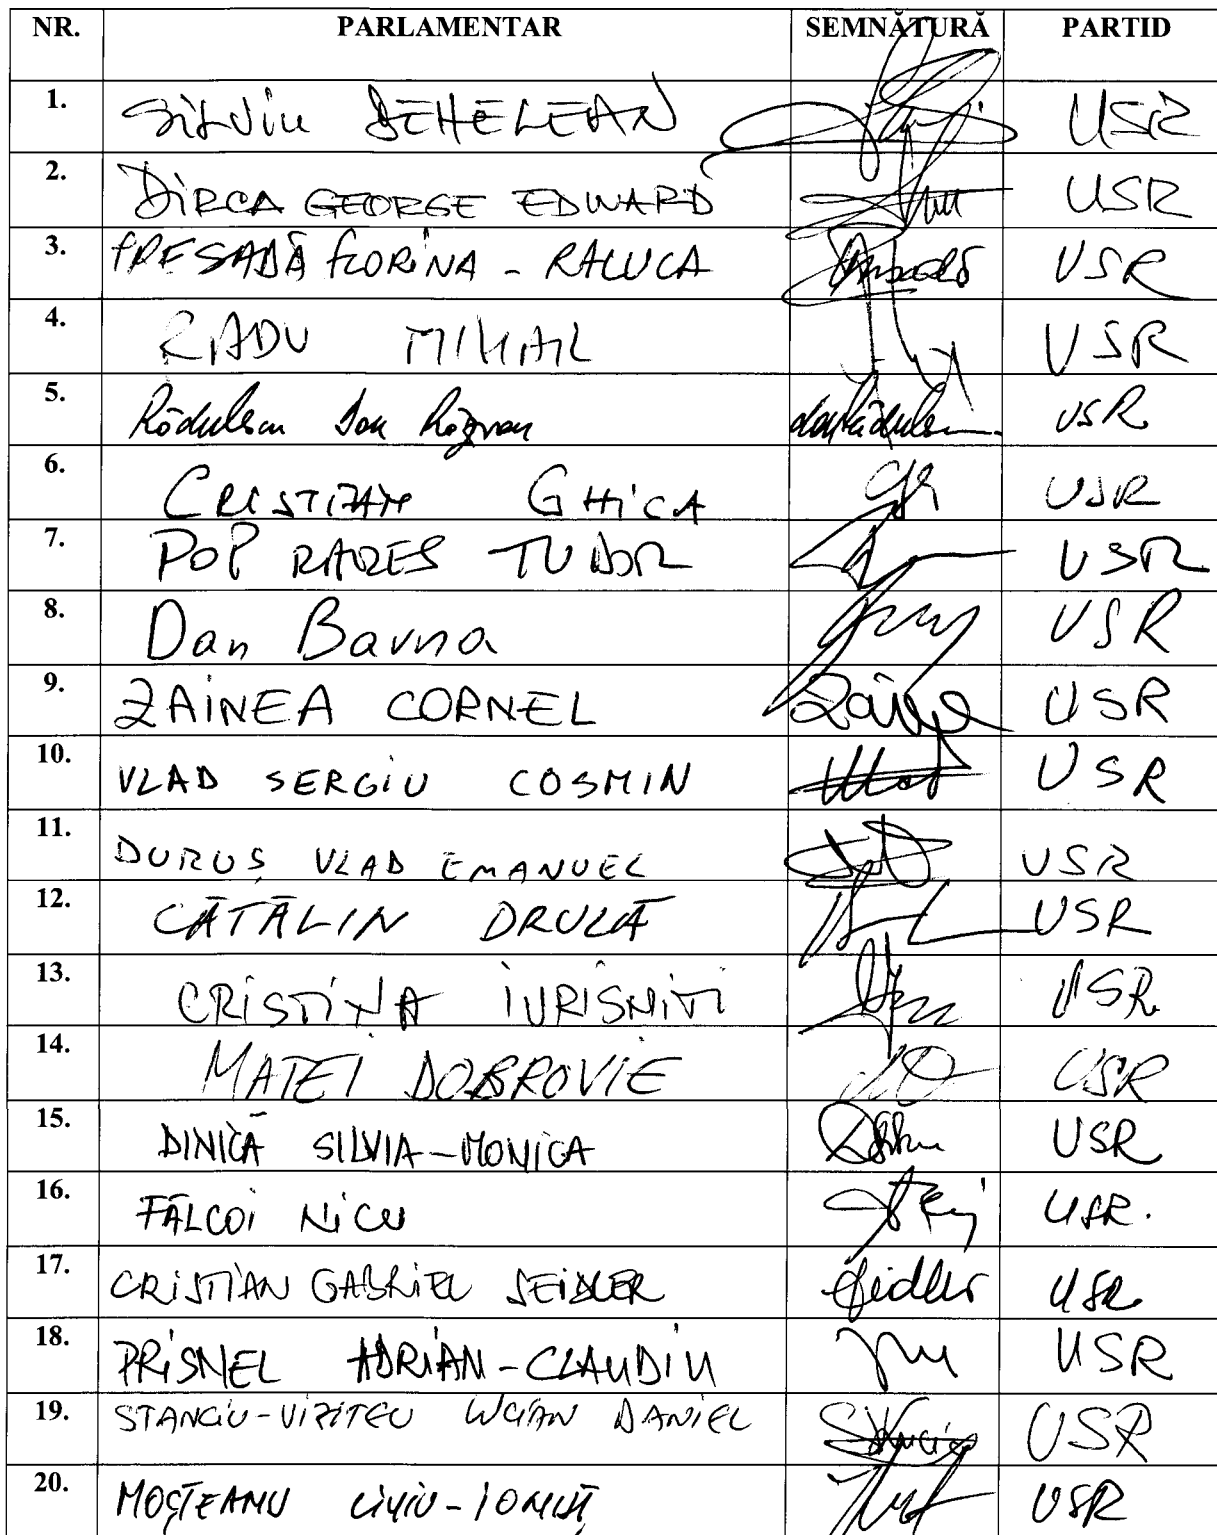 NR. PARLAMENTAR SEMNĂTURĂ PARTID
1. SILVIU DEHELEAN USR
2. DIRCA GEORGE EDWARD USR
3. PRESADĂ FLORINA - RALUCA USR
4. RADU MIHAIL USR
5. Rădulescu Dan Răzvan USR
6. CRISTIAN GHICA USR
7. POP RAREȘ TUDOR USR
8. Dan Barna USR
9. ZAINEA CORNEL Zainea USR
10. VLAD SERGIU COSMIN Vlad USR
11. DURUȘ VLAD EMANUEL USR
12. CĂTĂLIN DRULĂ USR
13. CRISTINA IURISNITI USR
14. MATEI DOBROVIE USR
15. DINICĂ SILVIA-MONICA USR
16. FĂLCOI NICU USR.
17. CRISTIAN GABRIEL SEIDLER Seidler USR
18. PRISNEL ADRIAN-CLAUDIU USR
19. STANCIU-VIZITEU LUCIAN DANIEL Stanciu USR
20. MOȘTEANU LIVIU-IONUȚ USR